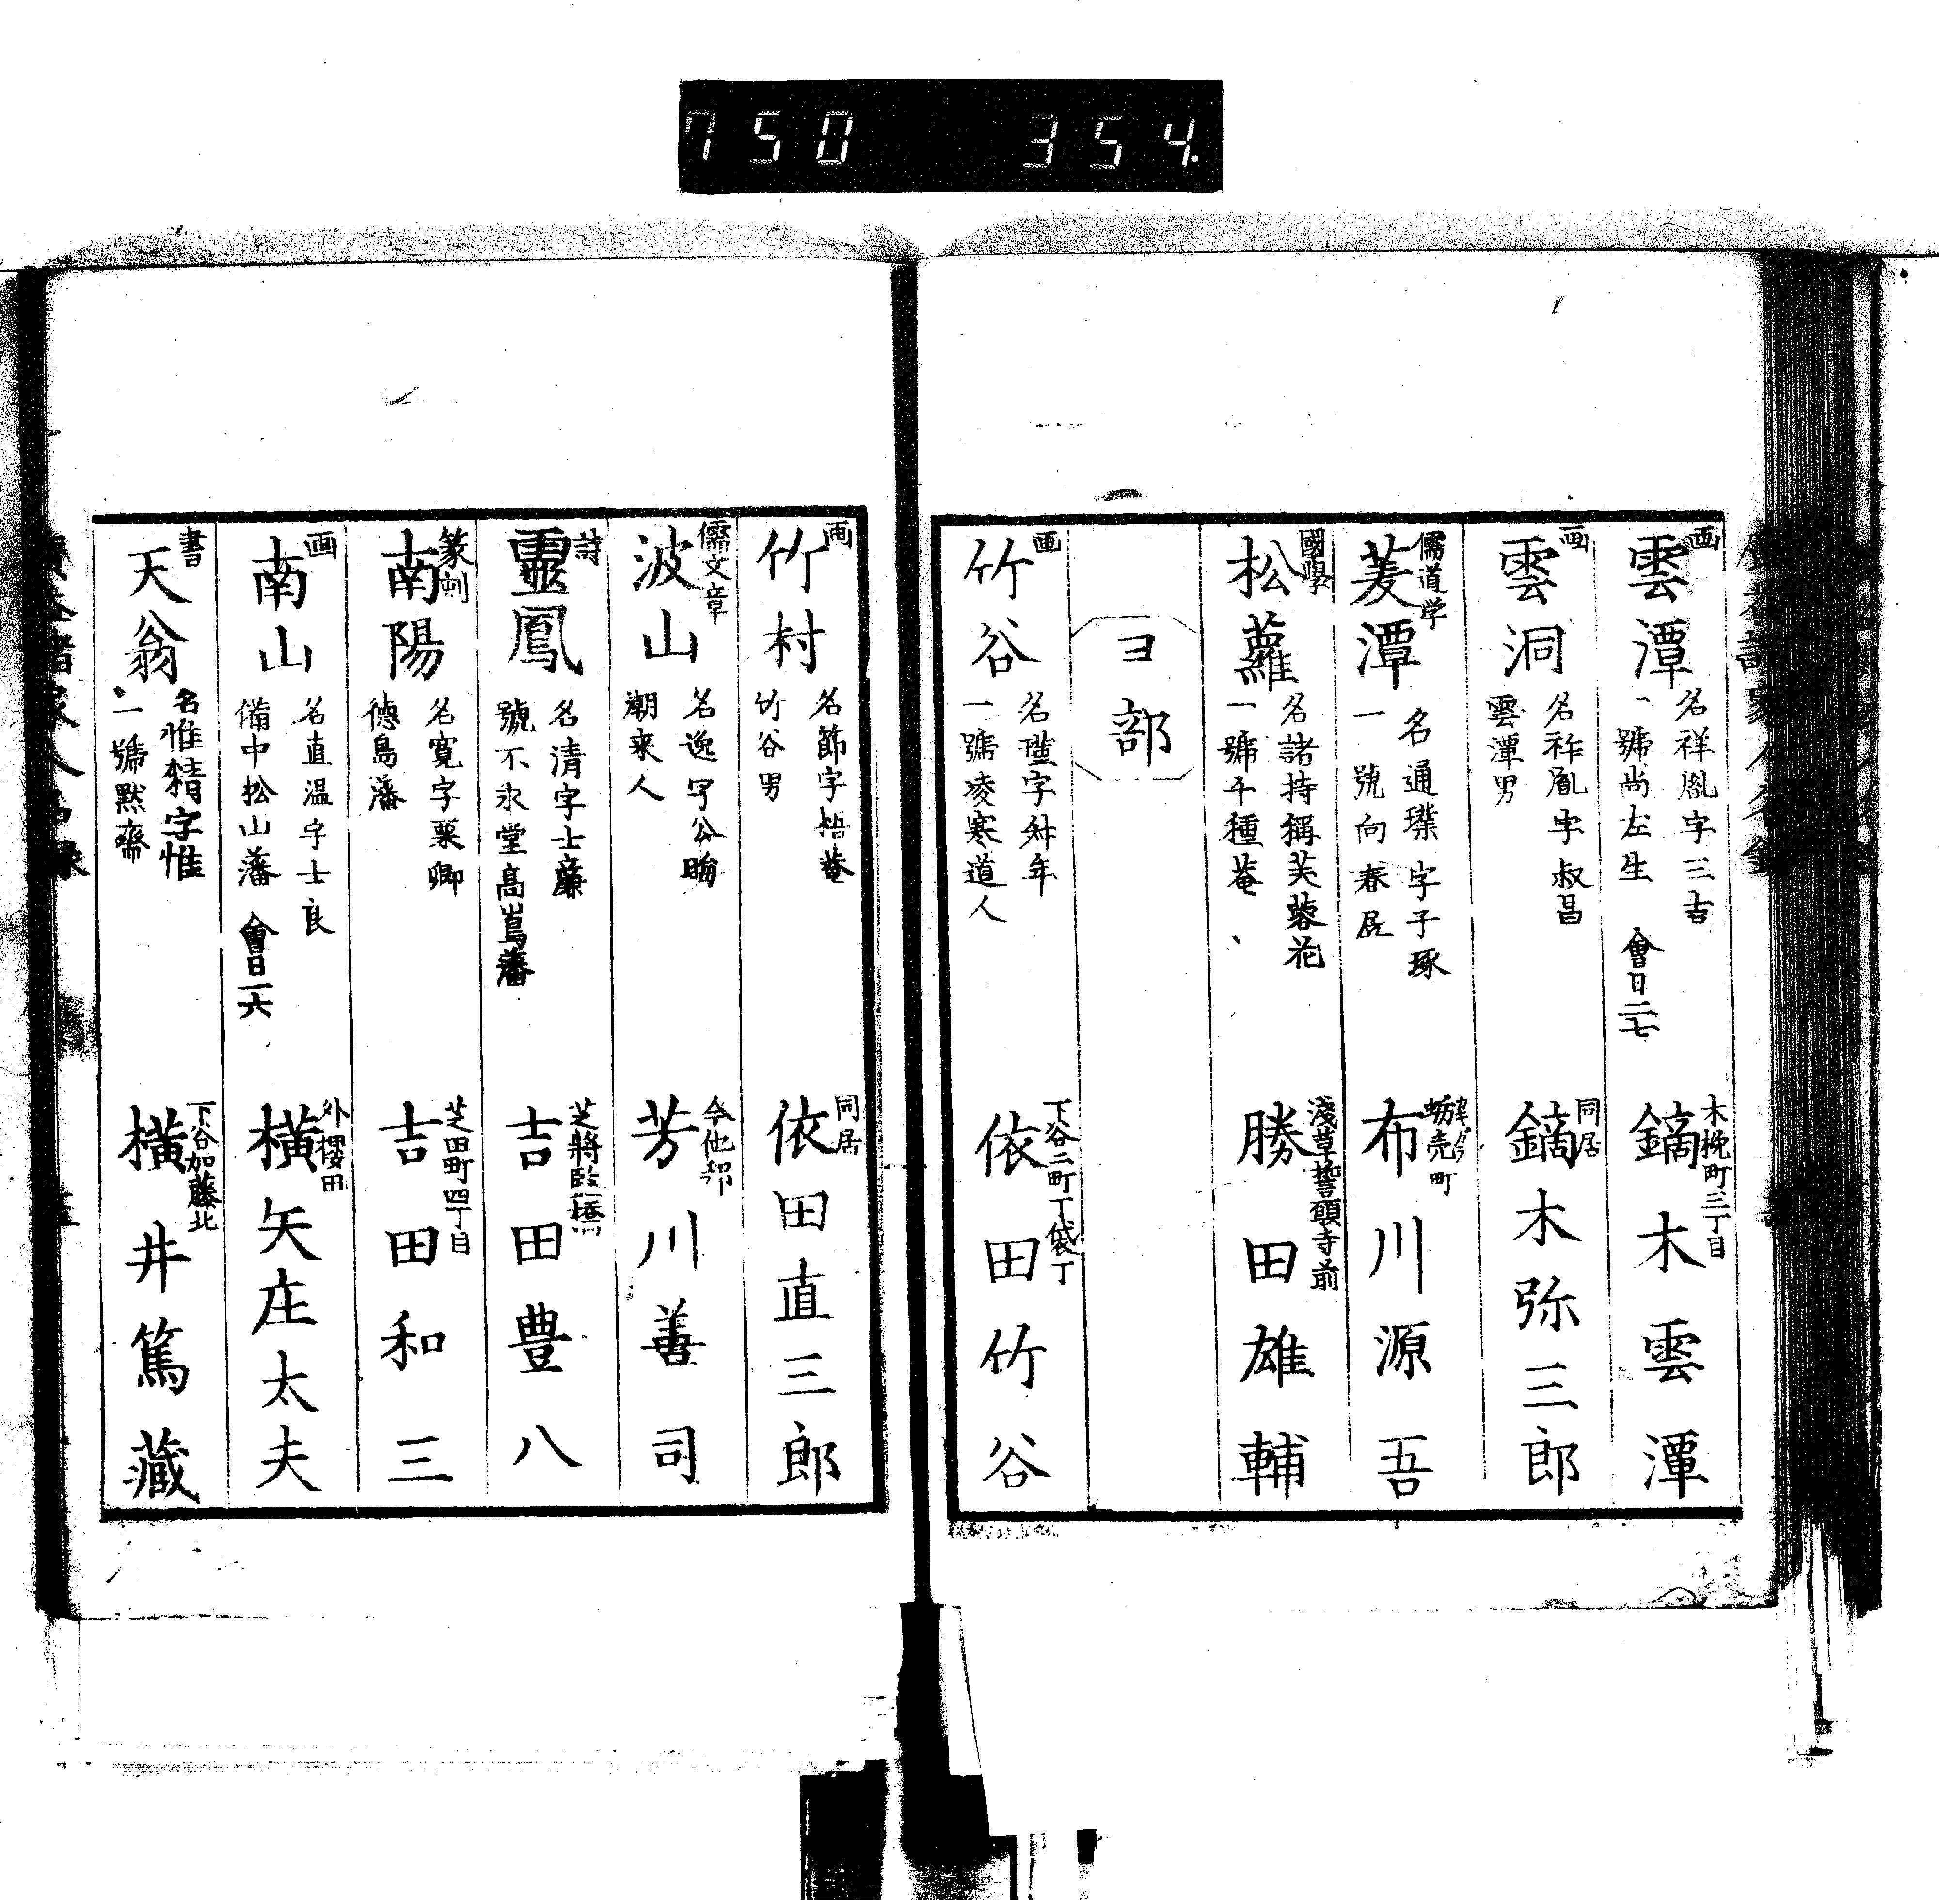 750 354
画
雲潭
名祥胤字三吉
一號尚左生 會日二七
木挽町三丁目
鏑木雲潭
画
雲洞
名祚胤字叔昌
雲潭男
同居
鏑木弥三郎
儒道学
菱潭
名通璞字子琢
一號向春居
蛎売町
布川源吾
國學
松蘿
名諸持稱芙蓉花
一號千種菴
淺草誓願寺前
勝田雄輔
ヨ部
画
竹谷
名瑾字舛年
一號凌寒道人
下谷二町丁袋丁
依田竹谷
画
竹村
名節字梧菴
竹谷男
同居
依田直三郎
儒文章
波山
名逸字公晦
潮来人
今他邦
芳川善司
詩
靈鳳
名清字士廉
號不求堂高嶌藩
芝將監橋
吉田豊八
篆刻
南陽
名寛字栗卿
德島藩
芝田町四丁目
吉田和三
画
南山
名直温字士良
備中松山藩 會日一六
外櫻田
横矢庄太夫
書
天翁
名惟精字惟
一號黙齋
下谷加藤北
横井篤藏